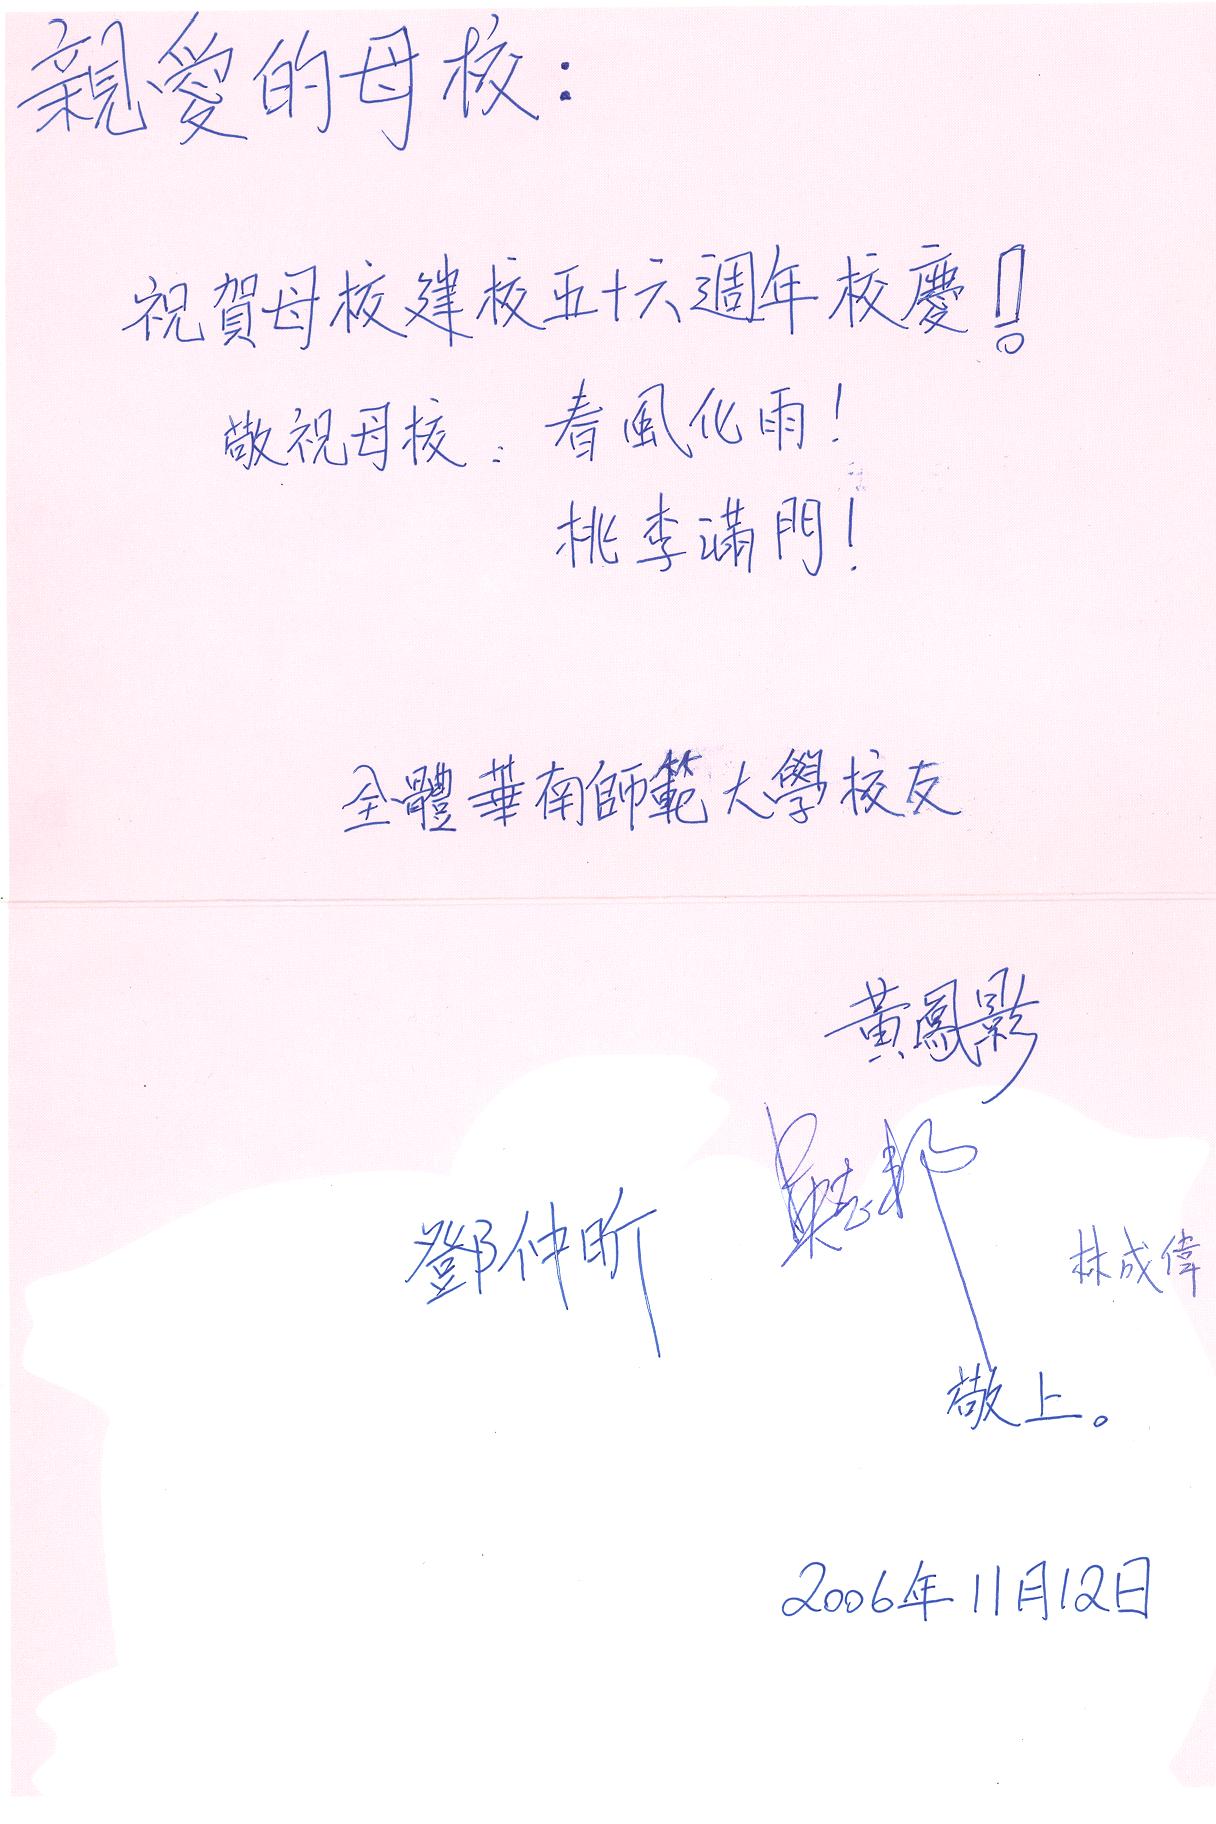 親愛的母校：
祝賀母校建校五十六週年校慶！
敬祝母校：春風化雨！
桃李滿門！
全體華南師範大學校友
黃鳳影
吳志邦
鄧仲昕
林成偉
敬上。
2006年11月12日